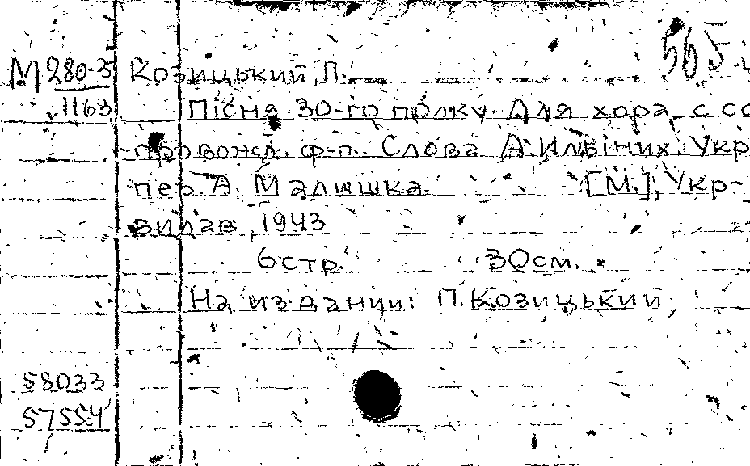 565
М 280-35 Козицький, П.
1163 Пісня 30-го полку. Для хора с со
провожд. ф-п. Слова А. Ильіних. Укр
пер. А. Малишка. [М.], Укр-
видав, 1943
6 стр. 30 см.
На издании: П. Козицький,
58033
57554